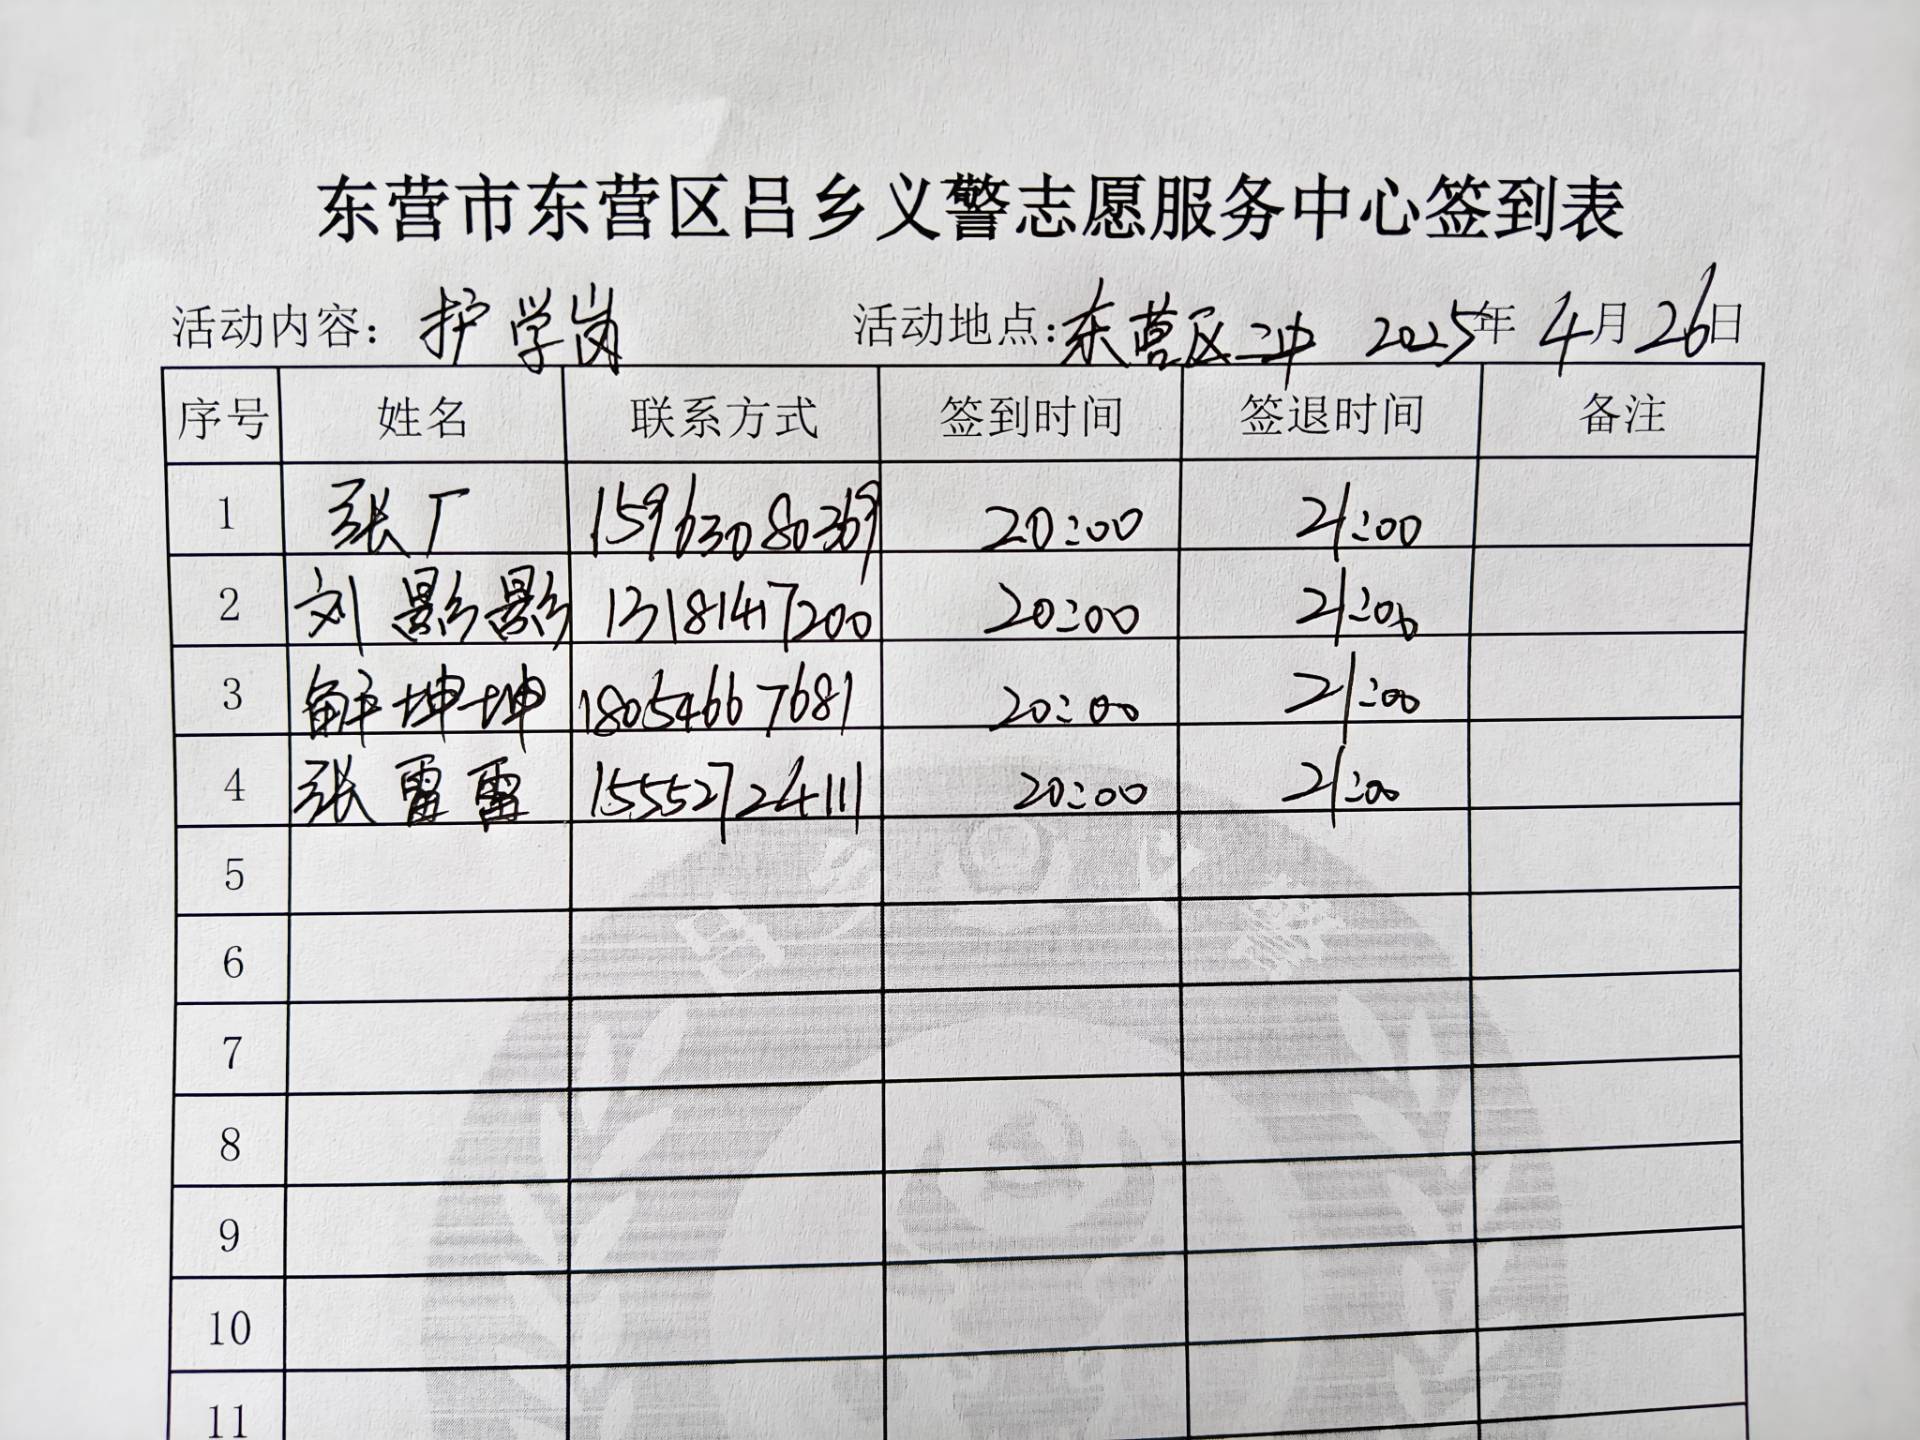 东营市东营区吕乡义警志愿服务中心签到表
活动内容：护学岗 活动地点：东营区二中 2025年4月26日
序号 姓名 联系方式 签到时间 签退时间 备注
1 张厂 15963080369 20:00 21:00
2 刘影影 13181417200 20:00 21:00
3 解坤坤 18054667681 20:00 21:00
4 张雷雷 15552724111 20:00 21:00
5
6
7
8
9
10
11